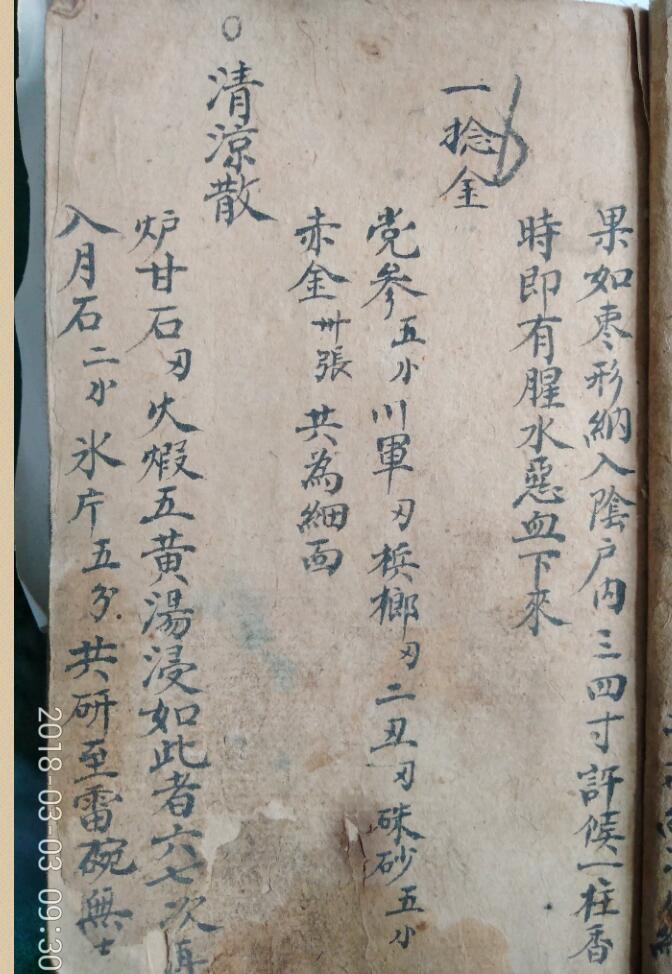 果如枣形納入陰户内三四寸許候一柱香
時即有腥水惡血下來
一捻金
党參五小川軍刃梹榔刃二丑刃硃砂五小
赤金卅張 共為細面
清涼散
炉甘石刃火煅五黄湯浸如此者六七次再
入月石二小氷片五分共研至雷碗無
2018-03-03 09:30